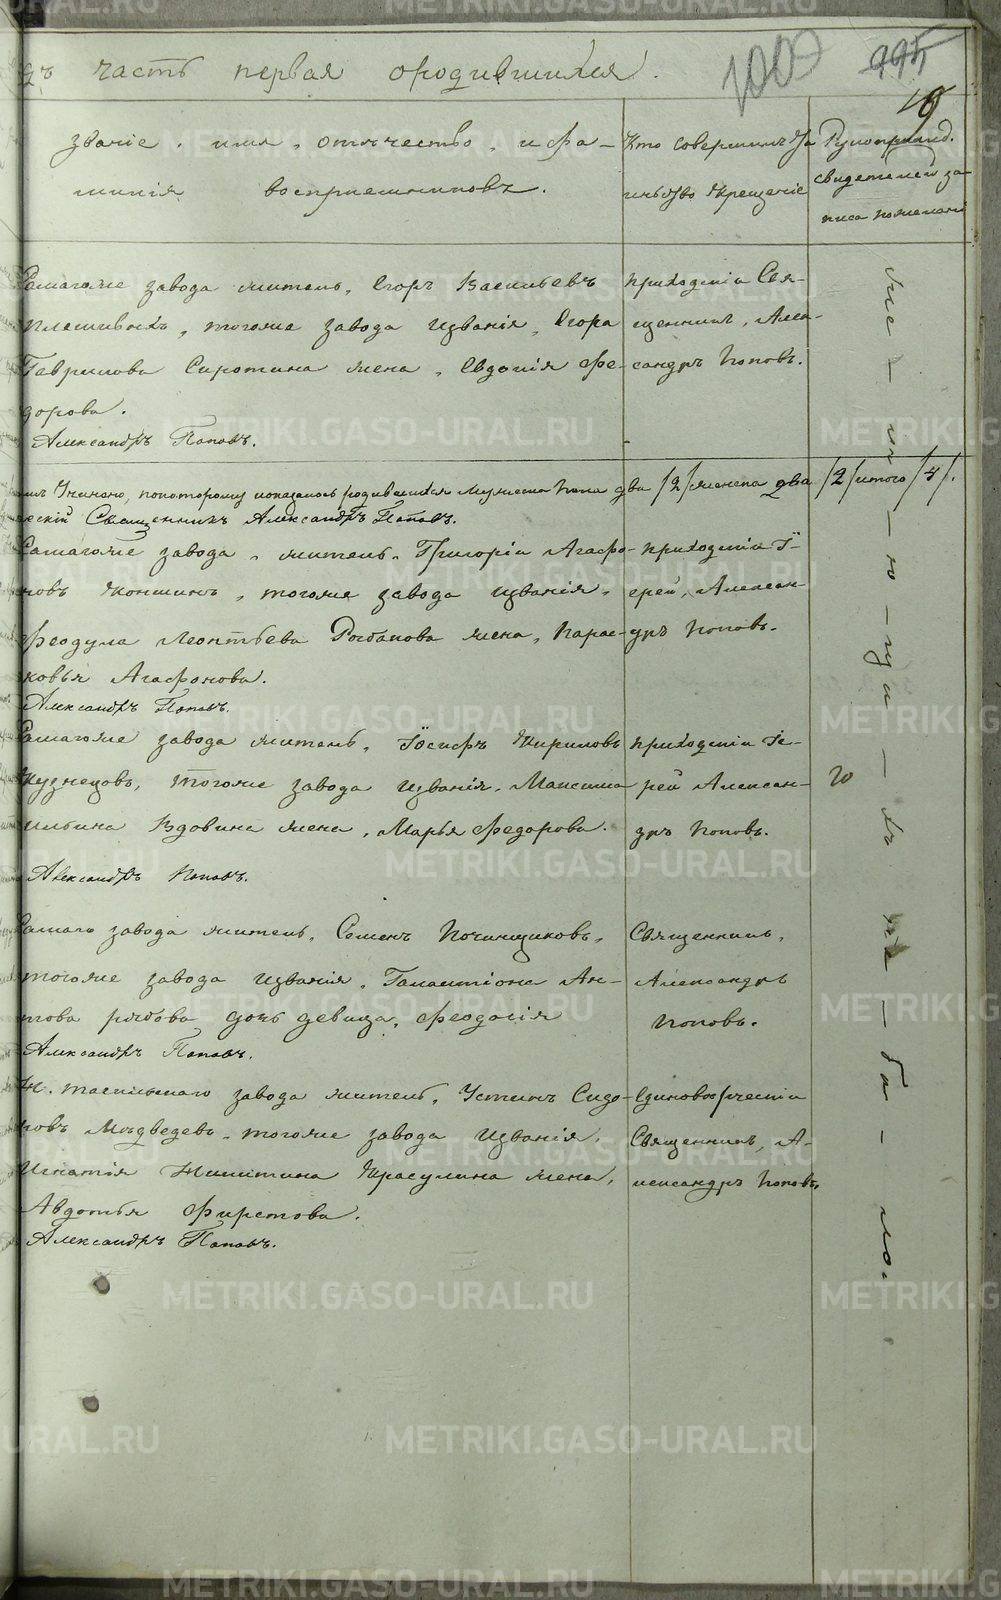 часть первая ородившихся.
1009
995
10
званіе, имя, отечество, и фа-
милія воспріемниковъ.
Кто совершилъ
крещеніе
свидетелей за-
писа пожеланi
завода житель, Егоръ Васильевъ
тогоже завода изванія, Егора
Гаврилова Сиротина жена, Евдокія Фе-
дорова.
Александръ Поповъ.
приходскіи Свя-
щенникъ, Алек-
сандръ Поповъ.
два /2/ женска два /2/ итого /4/.
Священникъ Александръ Поповъ.
завода, житель, Григоріи Агафо-
новъ тогоже завода изванія,
Феодула Леонтьева жена, Парас-
ковья Агафонова.
Александръ Поповъ.
приходскіи І-
ерей, Алексан-
дръ Поповъ.
завода житель, Іосифъ Кириловъ
Кузнецовъ, тогоже завода изванія, Максима
Ильина Вдовина жена, Марья Федорова.
Александръ Поповъ.
приходскіи Іе-
рей Алексан-
дръ Поповъ.
завода житель, Семенъ Починщиковъ,
тогоже завода изванія, Галактіона Ан-
това рябова дочь девица, Феодосія
Александръ Поповъ.
Священникъ,
Александръ
Поповъ.
Н. тагильскаго завода житель, Устинъ Сидо-
ровъ Мѣдведевъ, тогоже завода изванія,
Игнатія Никитина Красулина жена,
Авдотья Фирстова.
Александръ Поповъ.
Единовѣрческіи
Священникъ, А-
лександръ Поповъ.
METRIKI.GASO-URAL.RU